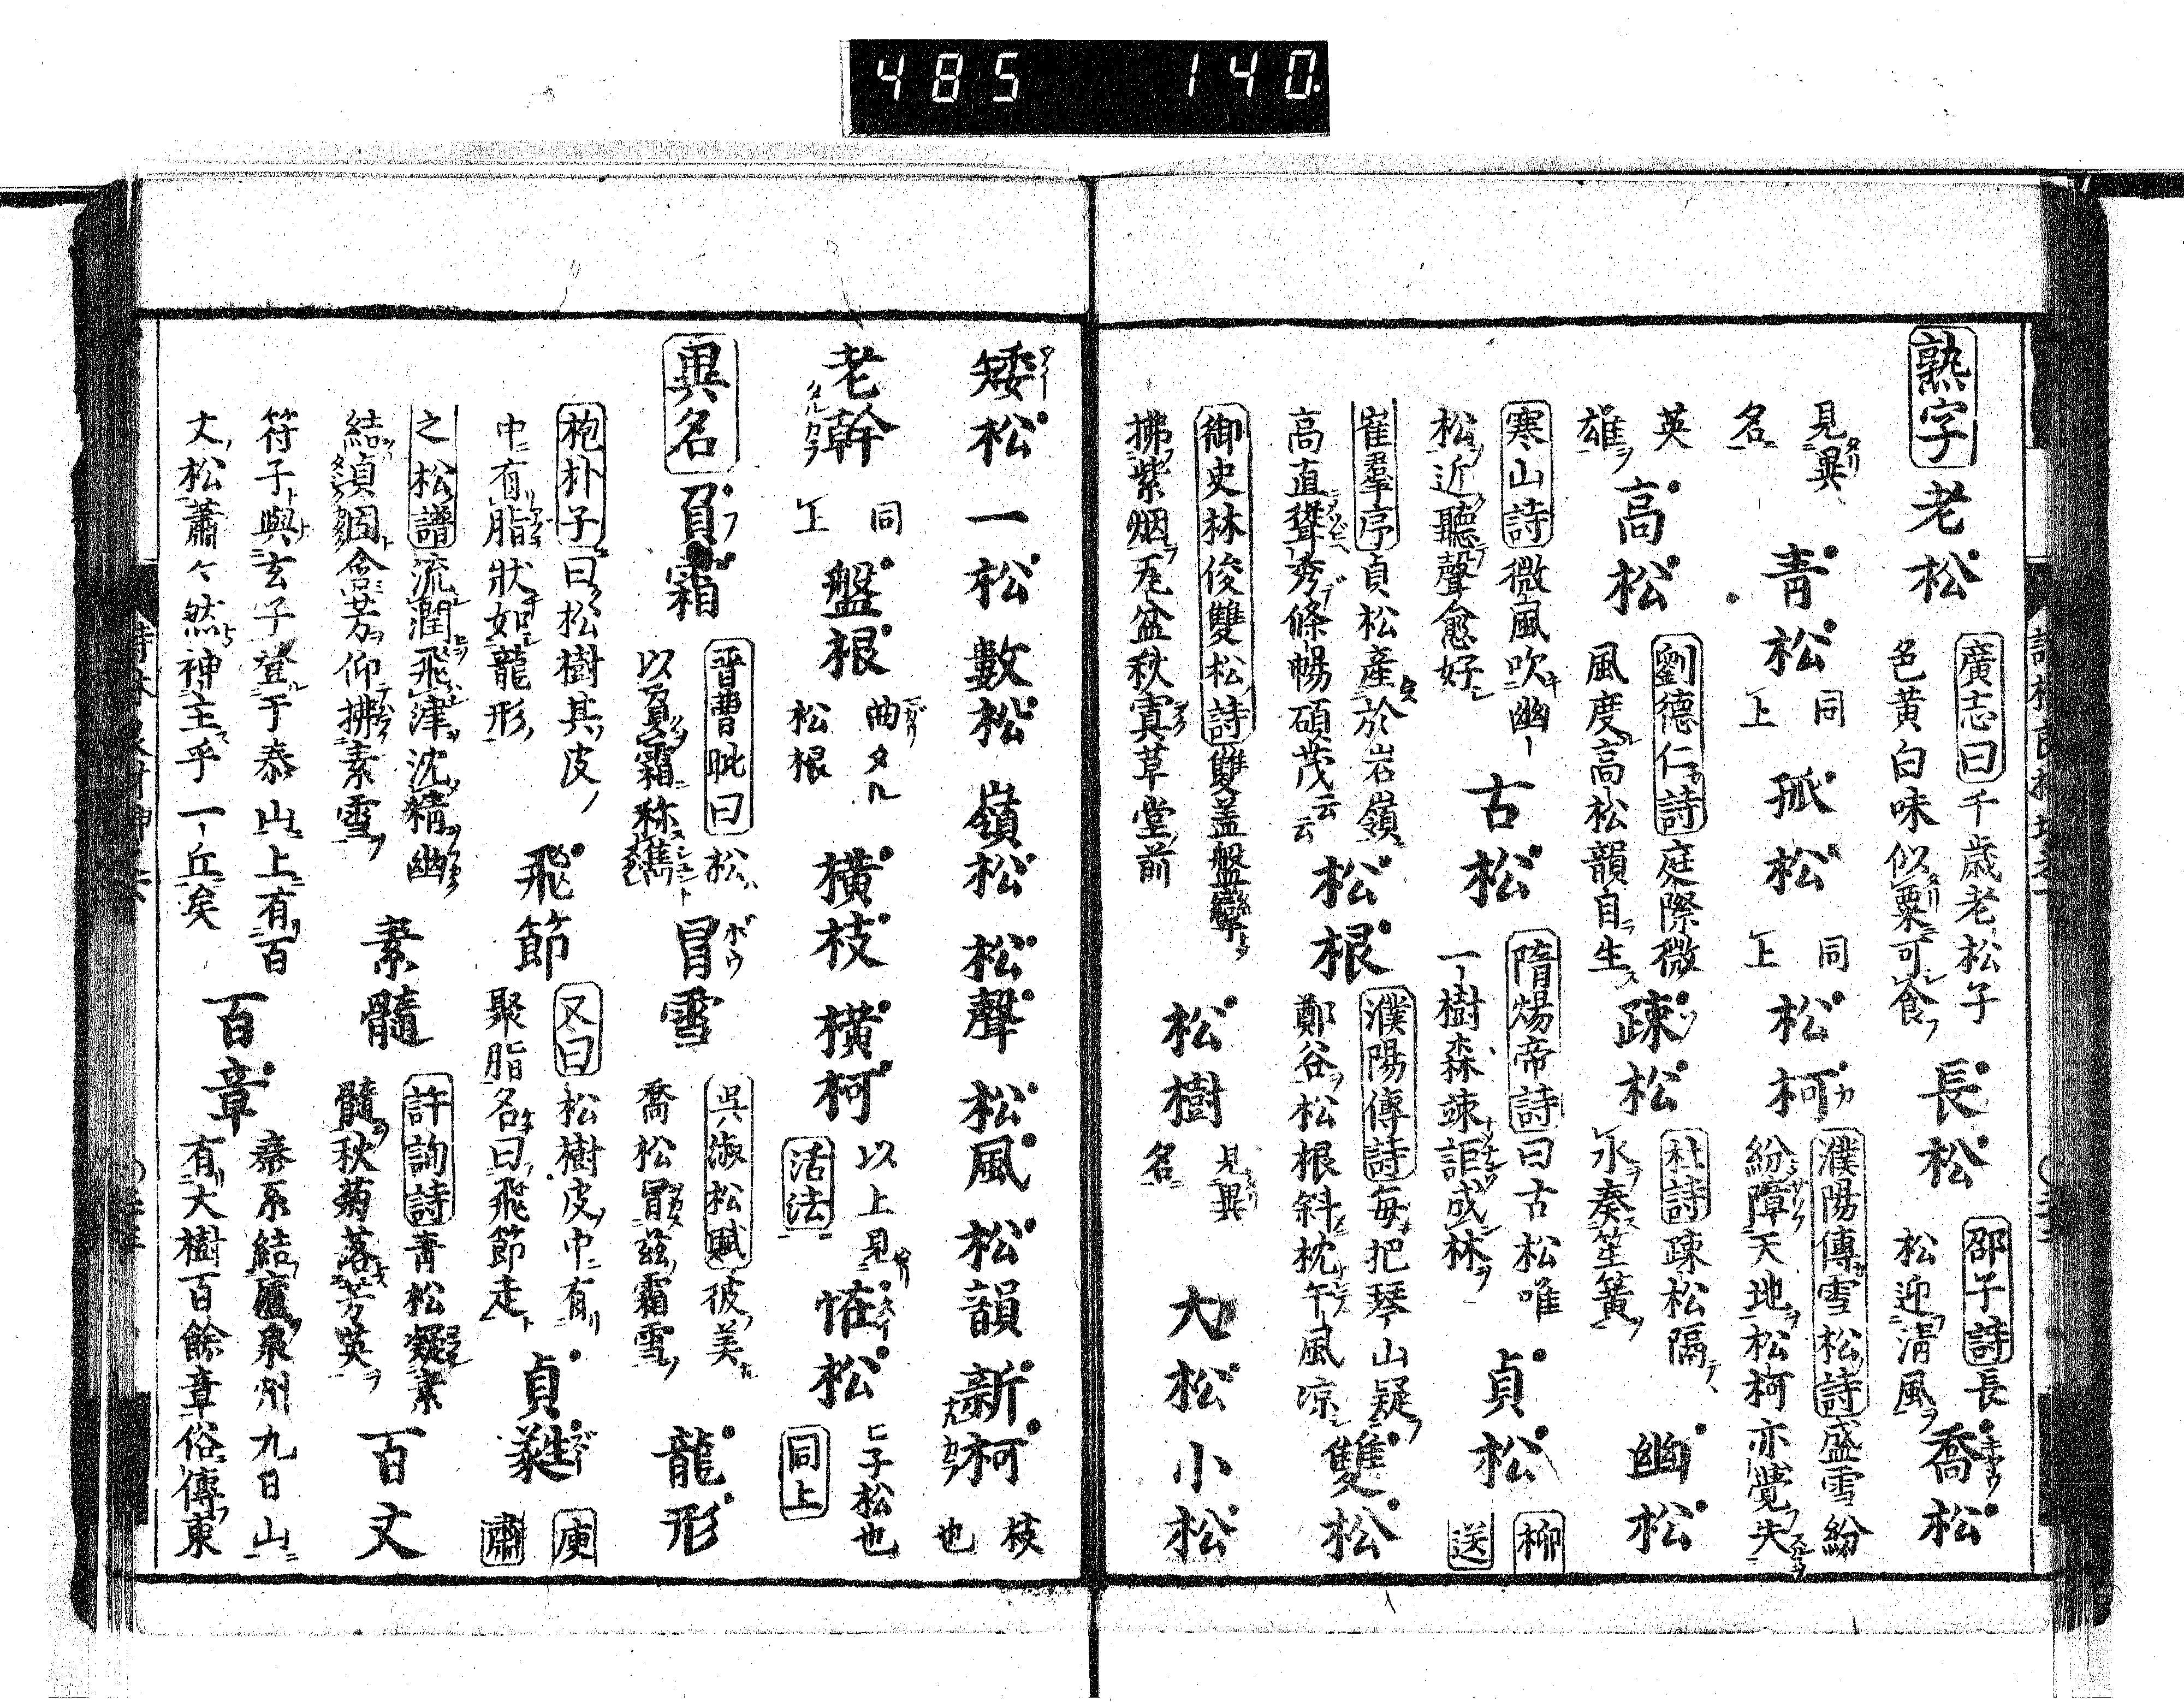 485 140
熟字 老松 廣志曰千歳老松子
色黄白味似粟可食 長松 邵子詩長
松迎淸風 喬松
見異
名 青松 同
上 孤松 同
上 松柯 濮陽傳雪松詩盛雪紛
紛障天地松柯亦覺失
英
雄 高松 劉德仁詩庭際微
風度高松韻自生 疎松 杜詩疎松隔
水奏笙簧 幽松
寒山詩微風吹幽一
松近聽聲愈好 古松 隋煬帝詩曰古松唯
一樹森竦詎成林 貞松 柳
送
崔羣序貞松產於岩嶺
高直聳秀條暢碩茂云云 松根 濮陽傳詩每把琴山疑
鄭谷松根斜枕午風凉 雙松
御史林俊雙松詩雙盖盤欝
拂紫烟瓦盆秋寘草堂前 松樹 見異
名 大松 小松
矮松 一松 數松 嶺松 松聲 松風 松韻 新柯 枝
也
老幹 同
上 盤根 曲タル
松根 橫枝 橫柯 以上見
活法 恠松 ヒ子松也
同上
異名 負霜 晋曹毗曰松
以負霜称雋 冒雪 吳淑松賦彼美
喬松冒茲霜雪 龍形
枹朴子曰松樹其皮
中有脂狀如龍形 飛節 又曰松樹皮中有
聚脂名曰飛節走 貞蕤 庾
肅
之松譜流潤飛津沈精幽
結貞固含芳仰拂素雪 素髓 許詢詩青松凝素
髓秋菊落芳英 百丈
符子與玄子登于泰山上有百
丈松蕭々然神主乎一丘矣 百章 秦系結廬泉州九日山
有大樹百餘章俗傳東